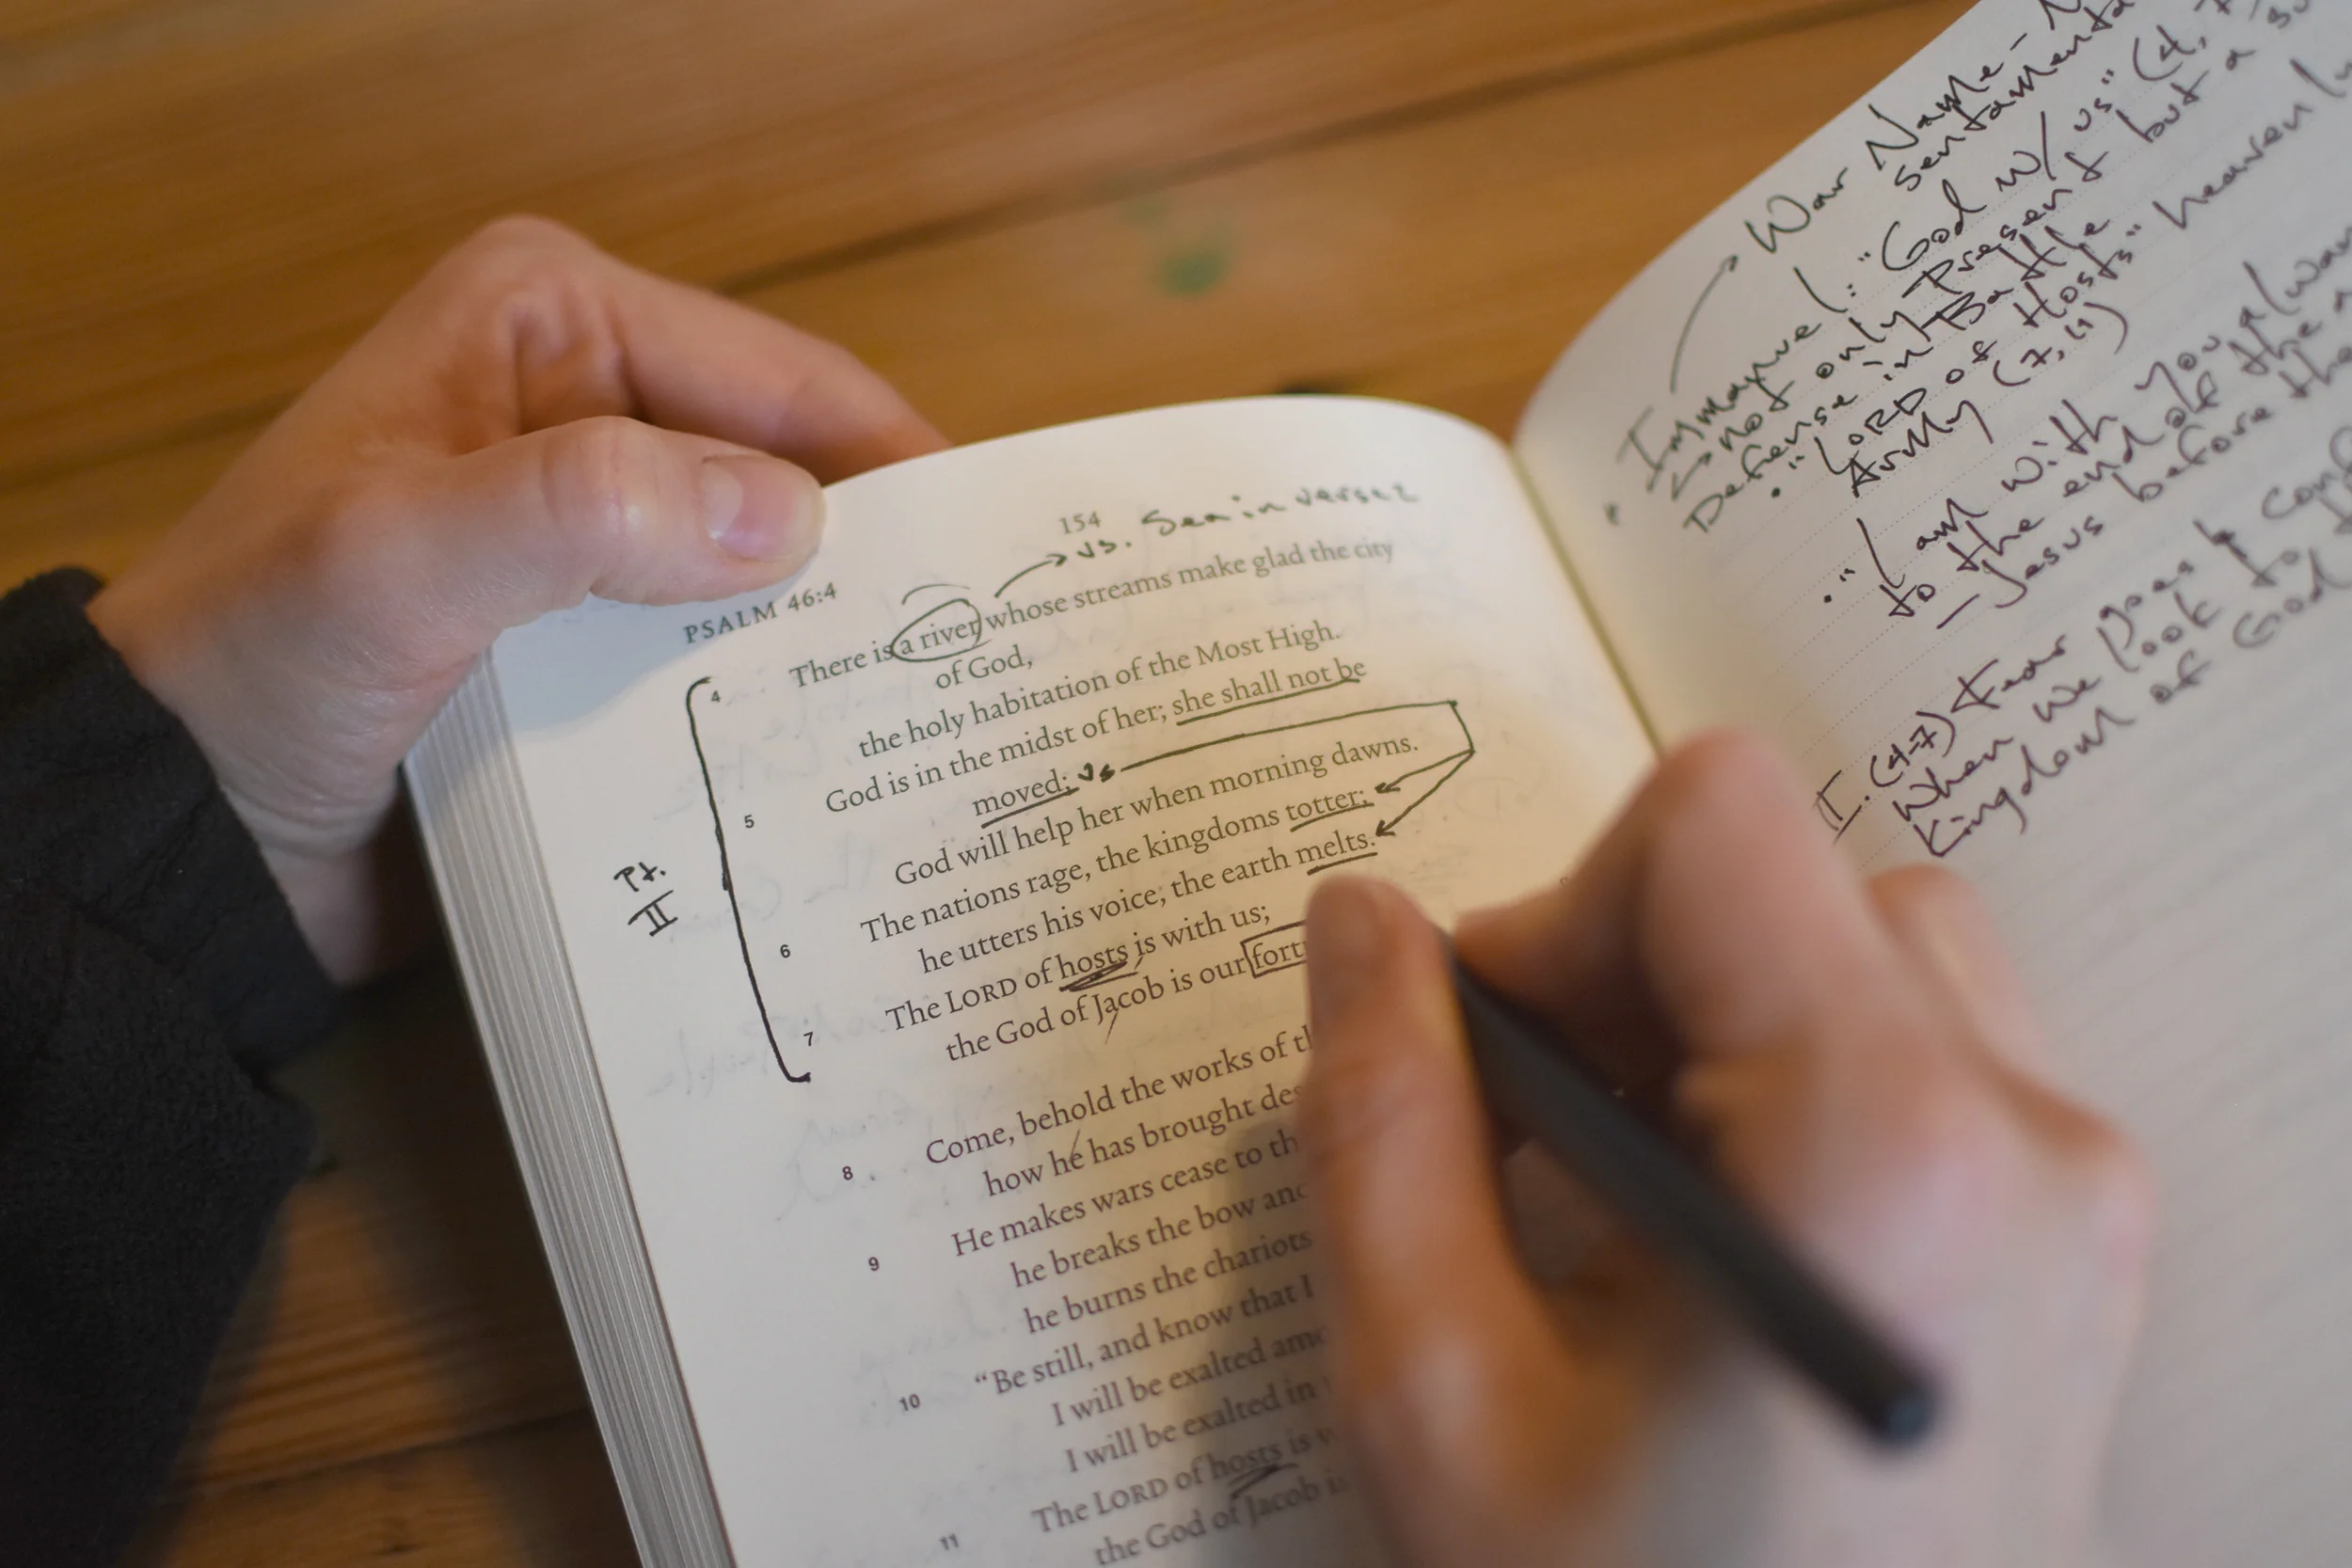 154
→ vs. Sea in verse 2
PSALM 46:4
4 There is a river whose streams make glad the city
of God,
the holy habitation of the Most High.
5 God is in the midst of her; she shall not be
moved; vs
God will help her when morning dawns.
6 The nations rage, the kingdoms totter;
he utters his voice, the earth melts.
7 The LORD of hosts is with us;
the God of Jacob is our
Pt.
II
8 Come, behold the works of
how he has brought
9 He makes wars cease to
he breaks the bow
he burns the chariots
10 “Be still, and know that I
I will be exalted
I will be exalted in
11 The LORD of hosts is
the God of Jacob is
→ War Name -
"Immanuel": "God w/ us" (4,
→ not only Present but a
Defense in Battle
• "LORD of Hosts" heaven
Army (7, 11)
• "I am with you
to the end of the
- Jesus before the
II. (4-7) Fear goes
When we look to
Kingdom of God